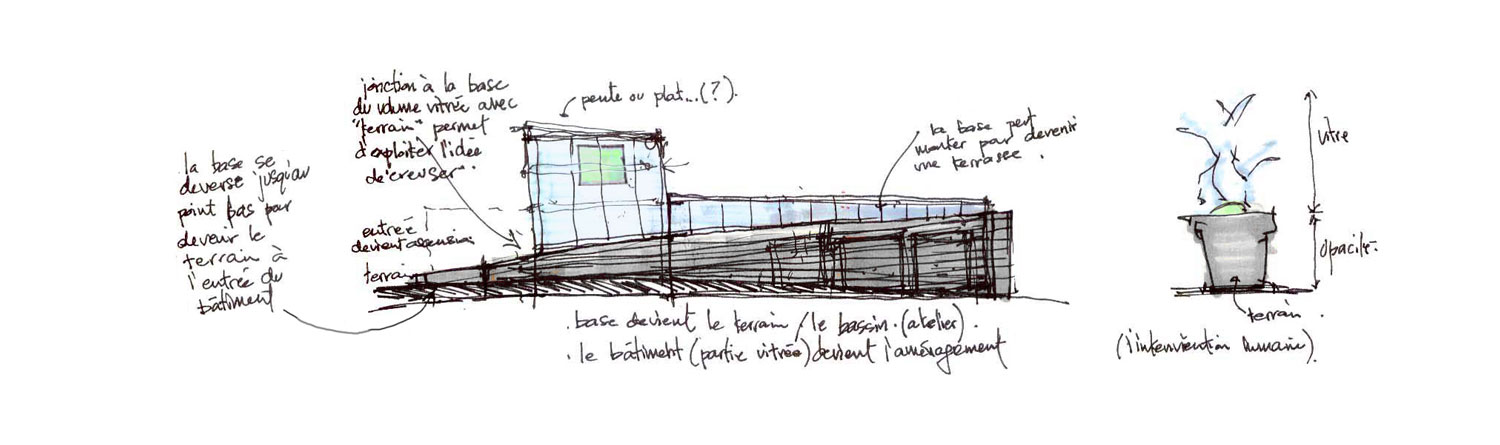 la base se
deverse jusqu'au
point bas pour
devenir le
terrain à
l'entrée du
bâtiment
jonction à la base
du volume vitrée avec
"terrain" permet
d'exploiter l'idée
de "creuser".
entrée
devient
terrain
pente ou plat...(?).
la base peut
monter pour devenir
une terrasse.
. base devient le terrain / le bassin. (atelier).
. le bâtiment (partie vitrée) devient l'aménagement
vitre
opacité.
terrain.
(l'intervention humaine).